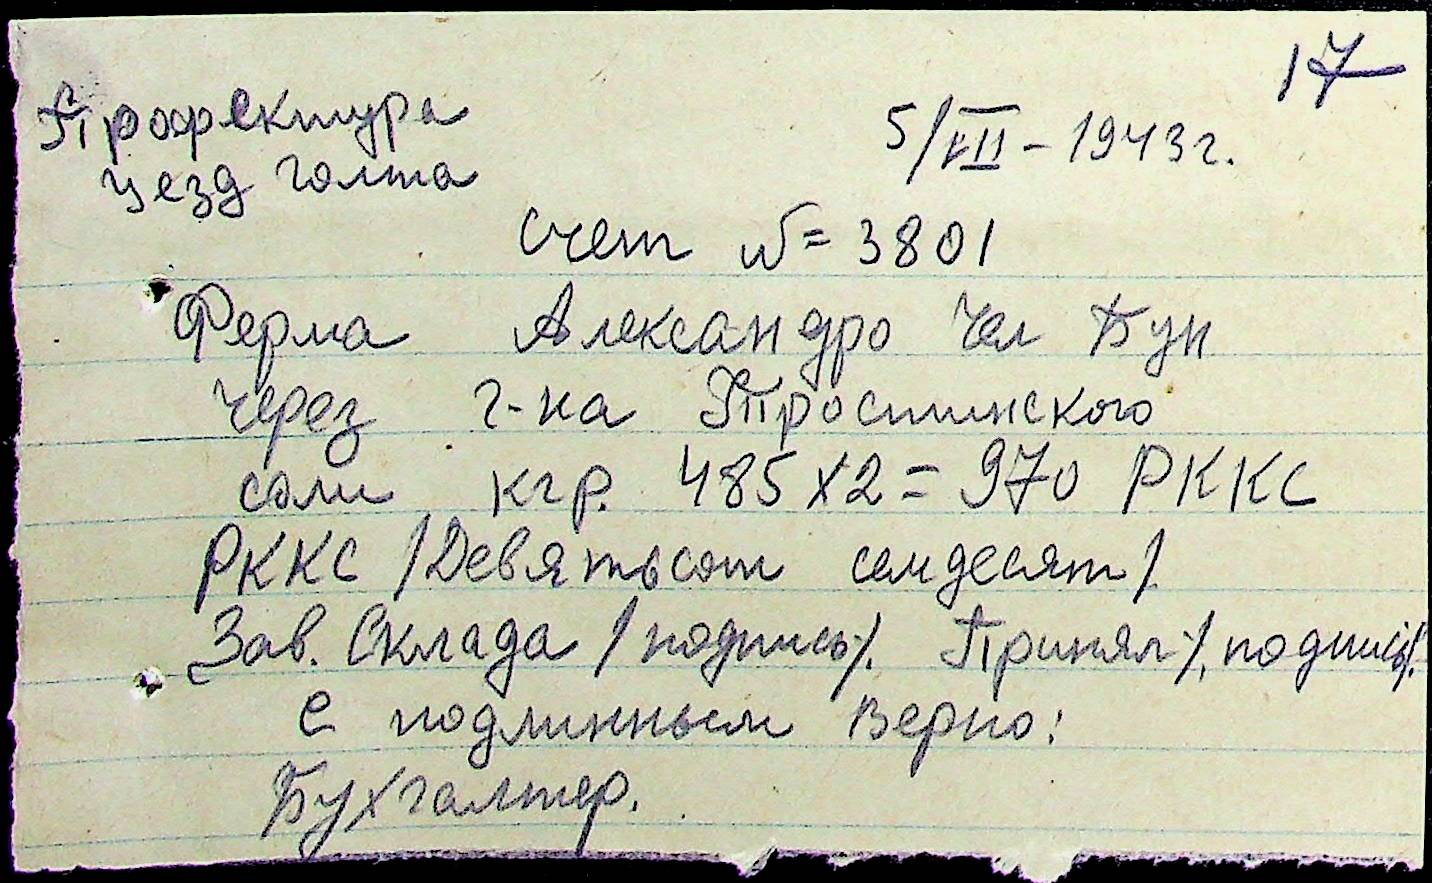 17
Профектура
уезд голта
5/VII - 1943 г.
Счет № = 3801
Ферма Александро Чел Бун
через г-на Тростинского
соли кгр. 485 х 2 = 970 РККС
РККС /Девятьсот семдесят/.
Зав. Склада /подпись/. Принял /подпись/.
С подлинным верно:
Бухгалтер.